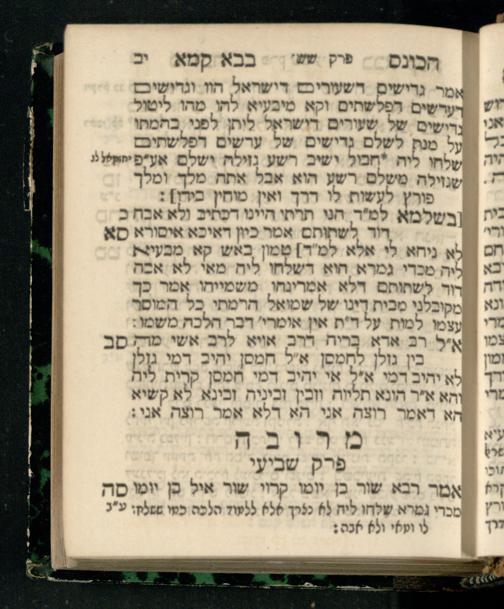 הכונס פרק ששי בבא קמא יב
אמר גדישים דשעורים דישראל הוו וגדישים
דעדשים דפלשתים וקא מיבעיא להו מהו ליטול
גדישים של שעורים דישראל ליתן לפני בהמתו
על מנת לשלם גדישים של עדשים דפלשתים
שלחו ליה *חבול ישיב רשע גזילה ישלם אע״פ יחזקאל לג
שגזילה משלם רשע הוא אבל אתה מלך ומלך
פורץ לעשות לו דרך ואין מוחין בידו] :
[בשלמא למ״ד הני תרתי היינו דכתיב ולא אבה כ
דוד לשתותם אמר כיון דאיכא איסורא סא
לא ניחא לי אלא למ״ד] טמון באש קא מבעיא
ליה מכדי גמרא הוא דשלחו ליה מאי לא אבה
דוד לשתותם דלא אמרינהו משמייהו אמר כך
מקובלני מבית דינו של שמואל הרמתי כל המוסר
עצמו למות על ד״ת אין אומרי׳ דבר הלכה משמו :
א״ל רב אדא בריה דרב אויא לרב אשי מה סב
בין גזלן לחמסן א״ל חמסן יהיב דמי גזלן
לא יהיב דמי א״ל אי יהיב דמי חמסן קרית ליה
והא א״ר הונא תליוה וזבין זביניה זבינא לא קשיא
הא דאמר רוצה אני הא דלא אמר רוצה אני :
מרובה
פרק שביעי
אמר רבא שור בן יומו קרוי שור איל בן יומו סה
מכדי גמרא שלחו ליה לא נצרך אלא ללמוד הלכה ע״ב
לו ומאי ולא אבה :